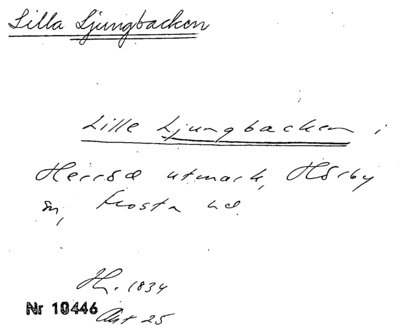 Lilla Ljungbacken
Lille Ljungbacken i
utmark, Hörby
sn, Frosta hd.
Hf. 1834
Nr 10446
Akt 25